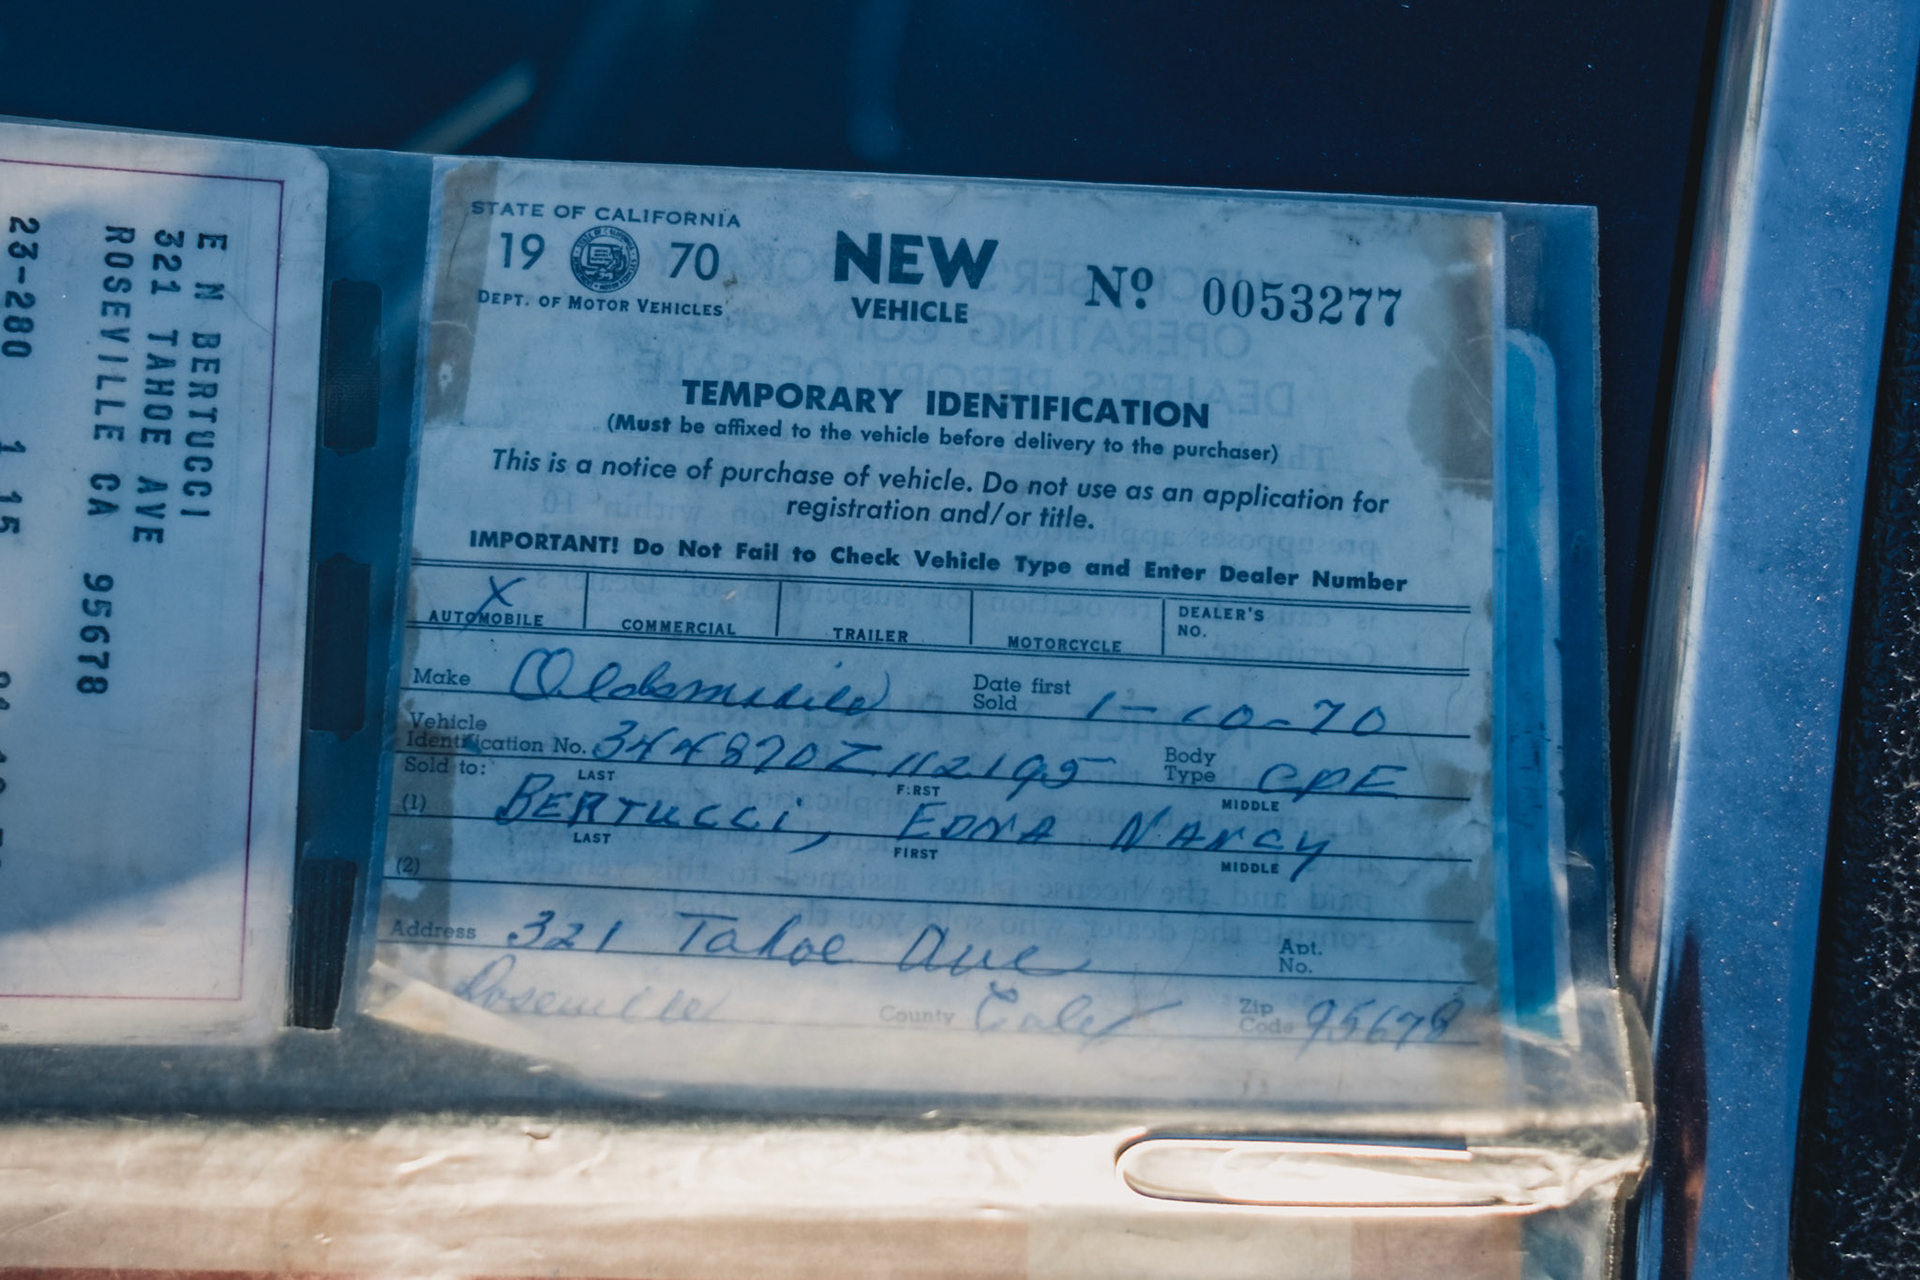 E N BERTUCCI
321 TAHOE AVE
ROSEVILLE CA 95678
23-280 1 15
STATE OF CALIFORNIA
19 70
DEPT. OF MOTOR VEHICLES
NEW
VEHICLE
Nº 0053277
TEMPORARY IDENTIFICATION
(Must be affixed to the vehicle before delivery to the purchaser)
This is a notice of purchase of vehicle. Do not use as an application for
registration and/or title.
IMPORTANT! Do Not Fail to Check Vehicle Type and Enter Dealer Number
X
AUTOMOBILE COMMERCIAL TRAILER MOTORCYCLE DEALER'S
NO.
Make Oldsmobile Date first
Sold 1-10-70
Vehicle
Identification No. 344870Z112195 Body
Type CPE
Sold to: LAST FIRST MIDDLE
(1) BERTUCCi, EDNA NANCY
LAST FIRST MIDDLE
(2)
Address 321 Tahoe Ave Apt.
No.
Roseville County Calif Zip
Code 95678